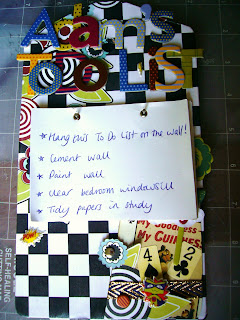 Adam's
To Do LiST
* Hang this To Do List on the wall!
* Cement wall
* Paint wall
* Clear bedroom windowsill
* Tidy papers in study
My Goodness
My Guinness
4 2
SELF-HEALING